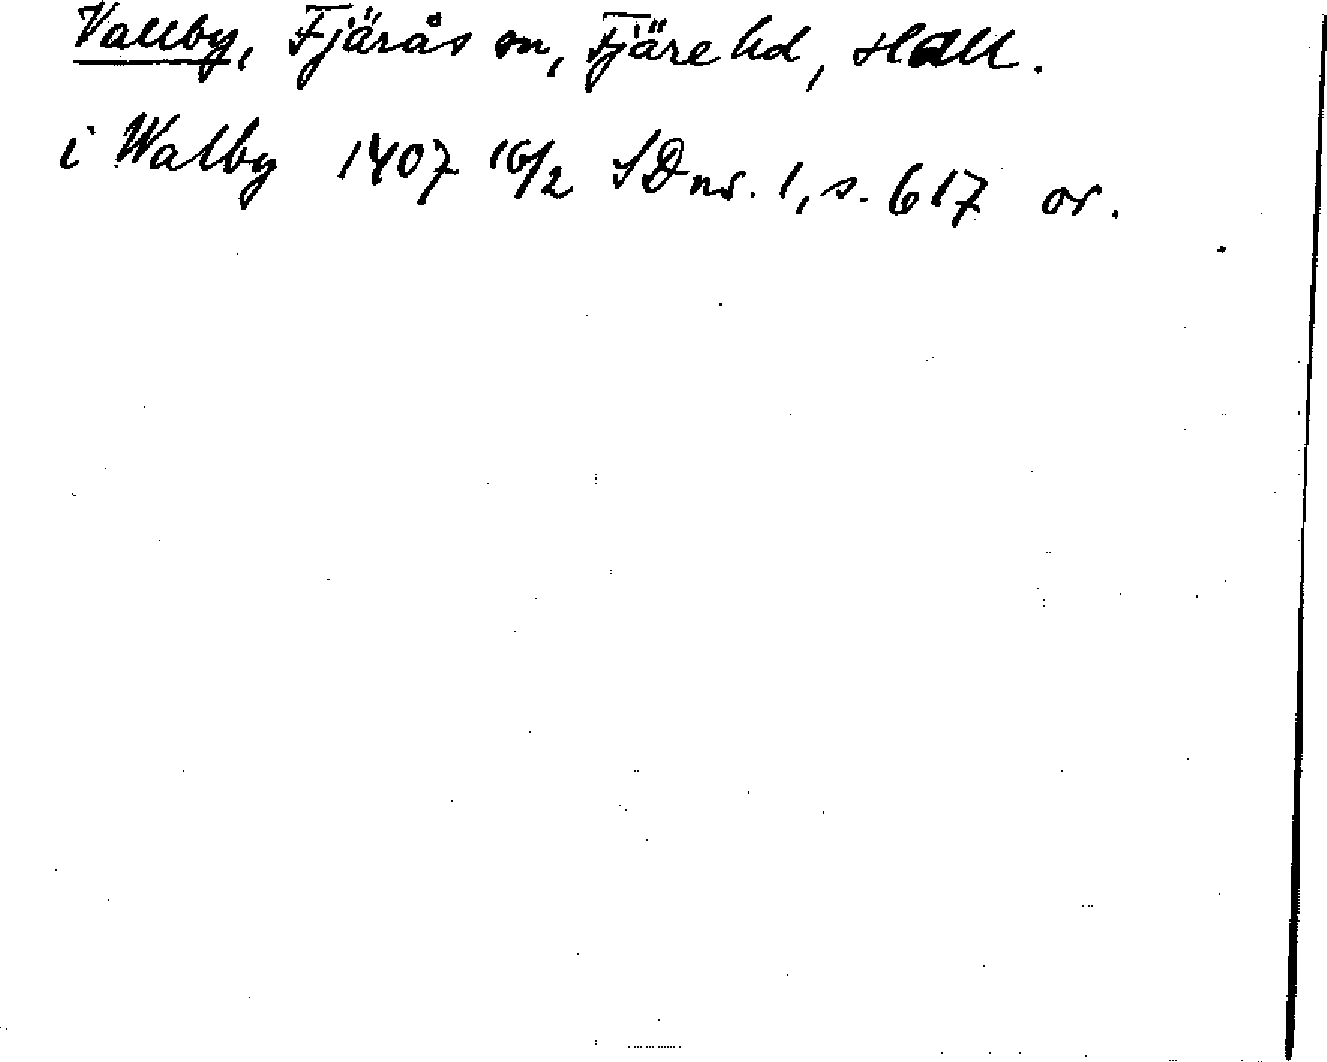 Vallby, Fjärås sn, Fjäre hd, Hall.
i Walby 1407 16/2 SD nr. 1, s. 617 or.